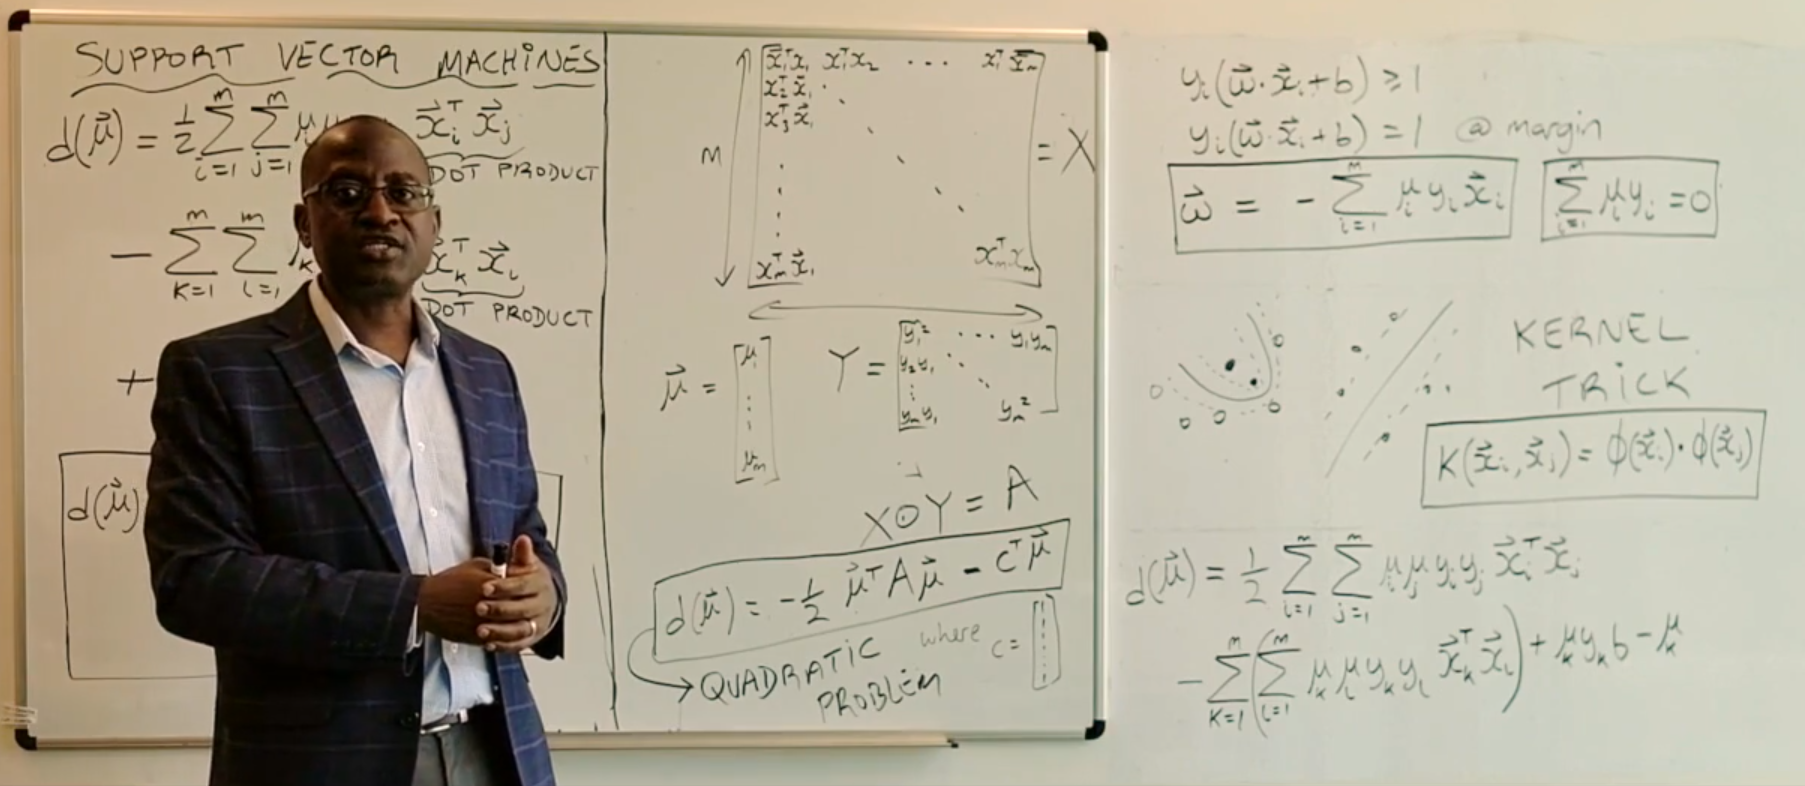 SUPPORT VECTOR MACHINES
d(μ⃗) = ½ Σᵢ₌₁ᵐ Σⱼ₌₁ᵐ μᵢ x⃗ᵢᵀ x⃗ⱼ
DOT PRODUCT
− Σₖ₌₁ᵐ Σᵢ₌₁ᵐ x⃗ₖᵀ x⃗ᵢ
DOT PRODUCT
+
d(μ⃗)
x⃗₁ᵀx₁ x₁ᵀx₂ ... x₁ᵀx⃗ₘ
x₂ᵀx⃗₁
x₃ᵀx⃗₁
M
= X
xₘᵀx⃗₁ xₘᵀxₘ
μ⃗ = [μ₁ ⋮ μₘ]
Y = [y₁² ... y₁yₘ
y₂y₁
⋮
yₘy₁ yₘ²]
X⊙Y = A
d(μ⃗) = −½ μ⃗ᵀAμ⃗ − cᵀμ⃗
QUADRATIC
PROBLEM
where c = [ ]
yᵢ(w⃗·x⃗ᵢ+b) ≥ 1
yᵢ(w⃗·x⃗ᵢ+b) = 1 @ margin
w⃗ = − Σᵢ₌₁ᵐ μᵢyᵢx⃗ᵢ
Σᵢ₌₁ᵐ μᵢyᵢ = 0
KERNEL
TRICK
K(x⃗ᵢ,x⃗ⱼ) = ϕ(x⃗ᵢ)·ϕ(x⃗ⱼ)
d(μ⃗) = ½ Σᵢ₌₁ᵐ Σⱼ₌₁ᵐ μᵢμⱼyᵢyⱼ x⃗ᵢᵀx⃗ⱼ
− Σₖ₌₁ᵐ (Σᵢ₌₁ᵐ μₖμᵢyₖyᵢ x⃗ₖᵀx⃗ᵢ) + μₖyₖb − μₖ